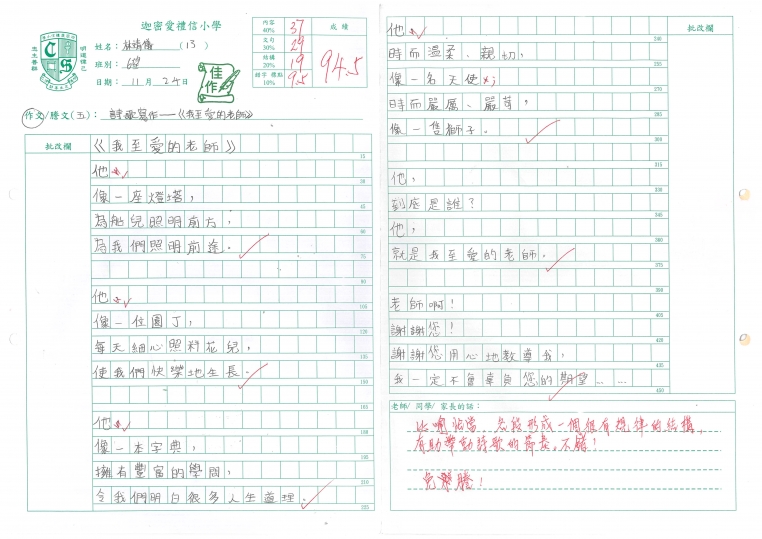 迦密愛禮信小學
姓名：林靖儀 (13)
班別：
日期：11月24日
內容 40% 37
文句 30% 29
結構 20% 19
錯字 標點 10% 9.5
成績
94.5
佳作
作文/謄文(五)：詩歌寫作——《我至愛的老師》
批改欄
《我至愛的老師》
他
像一座燈塔，
為船兒照明前方，
為我們照明前途。
他
像一位園丁，
每天細心照料花兒，
使我們快樂地生長。
他
像一本字典，
擁有豐富的學問，
令我們明白很多人生道理。
批改欄
他
時而溫柔、親切，
像一名天使；
時而嚴厲、嚴苛，
像一隻獅子。
他，
到底是誰？
他，
就是我至愛的老師。
老師啊！
謝謝您！
謝謝您用心地教導我，
我一定不會辜負您的期望……
老師/ 同學/ 家長的話：
比喻恰當，各段形成一個很有規律的結構，
有助帶動詩歌的節奏。不錯！
免謄！